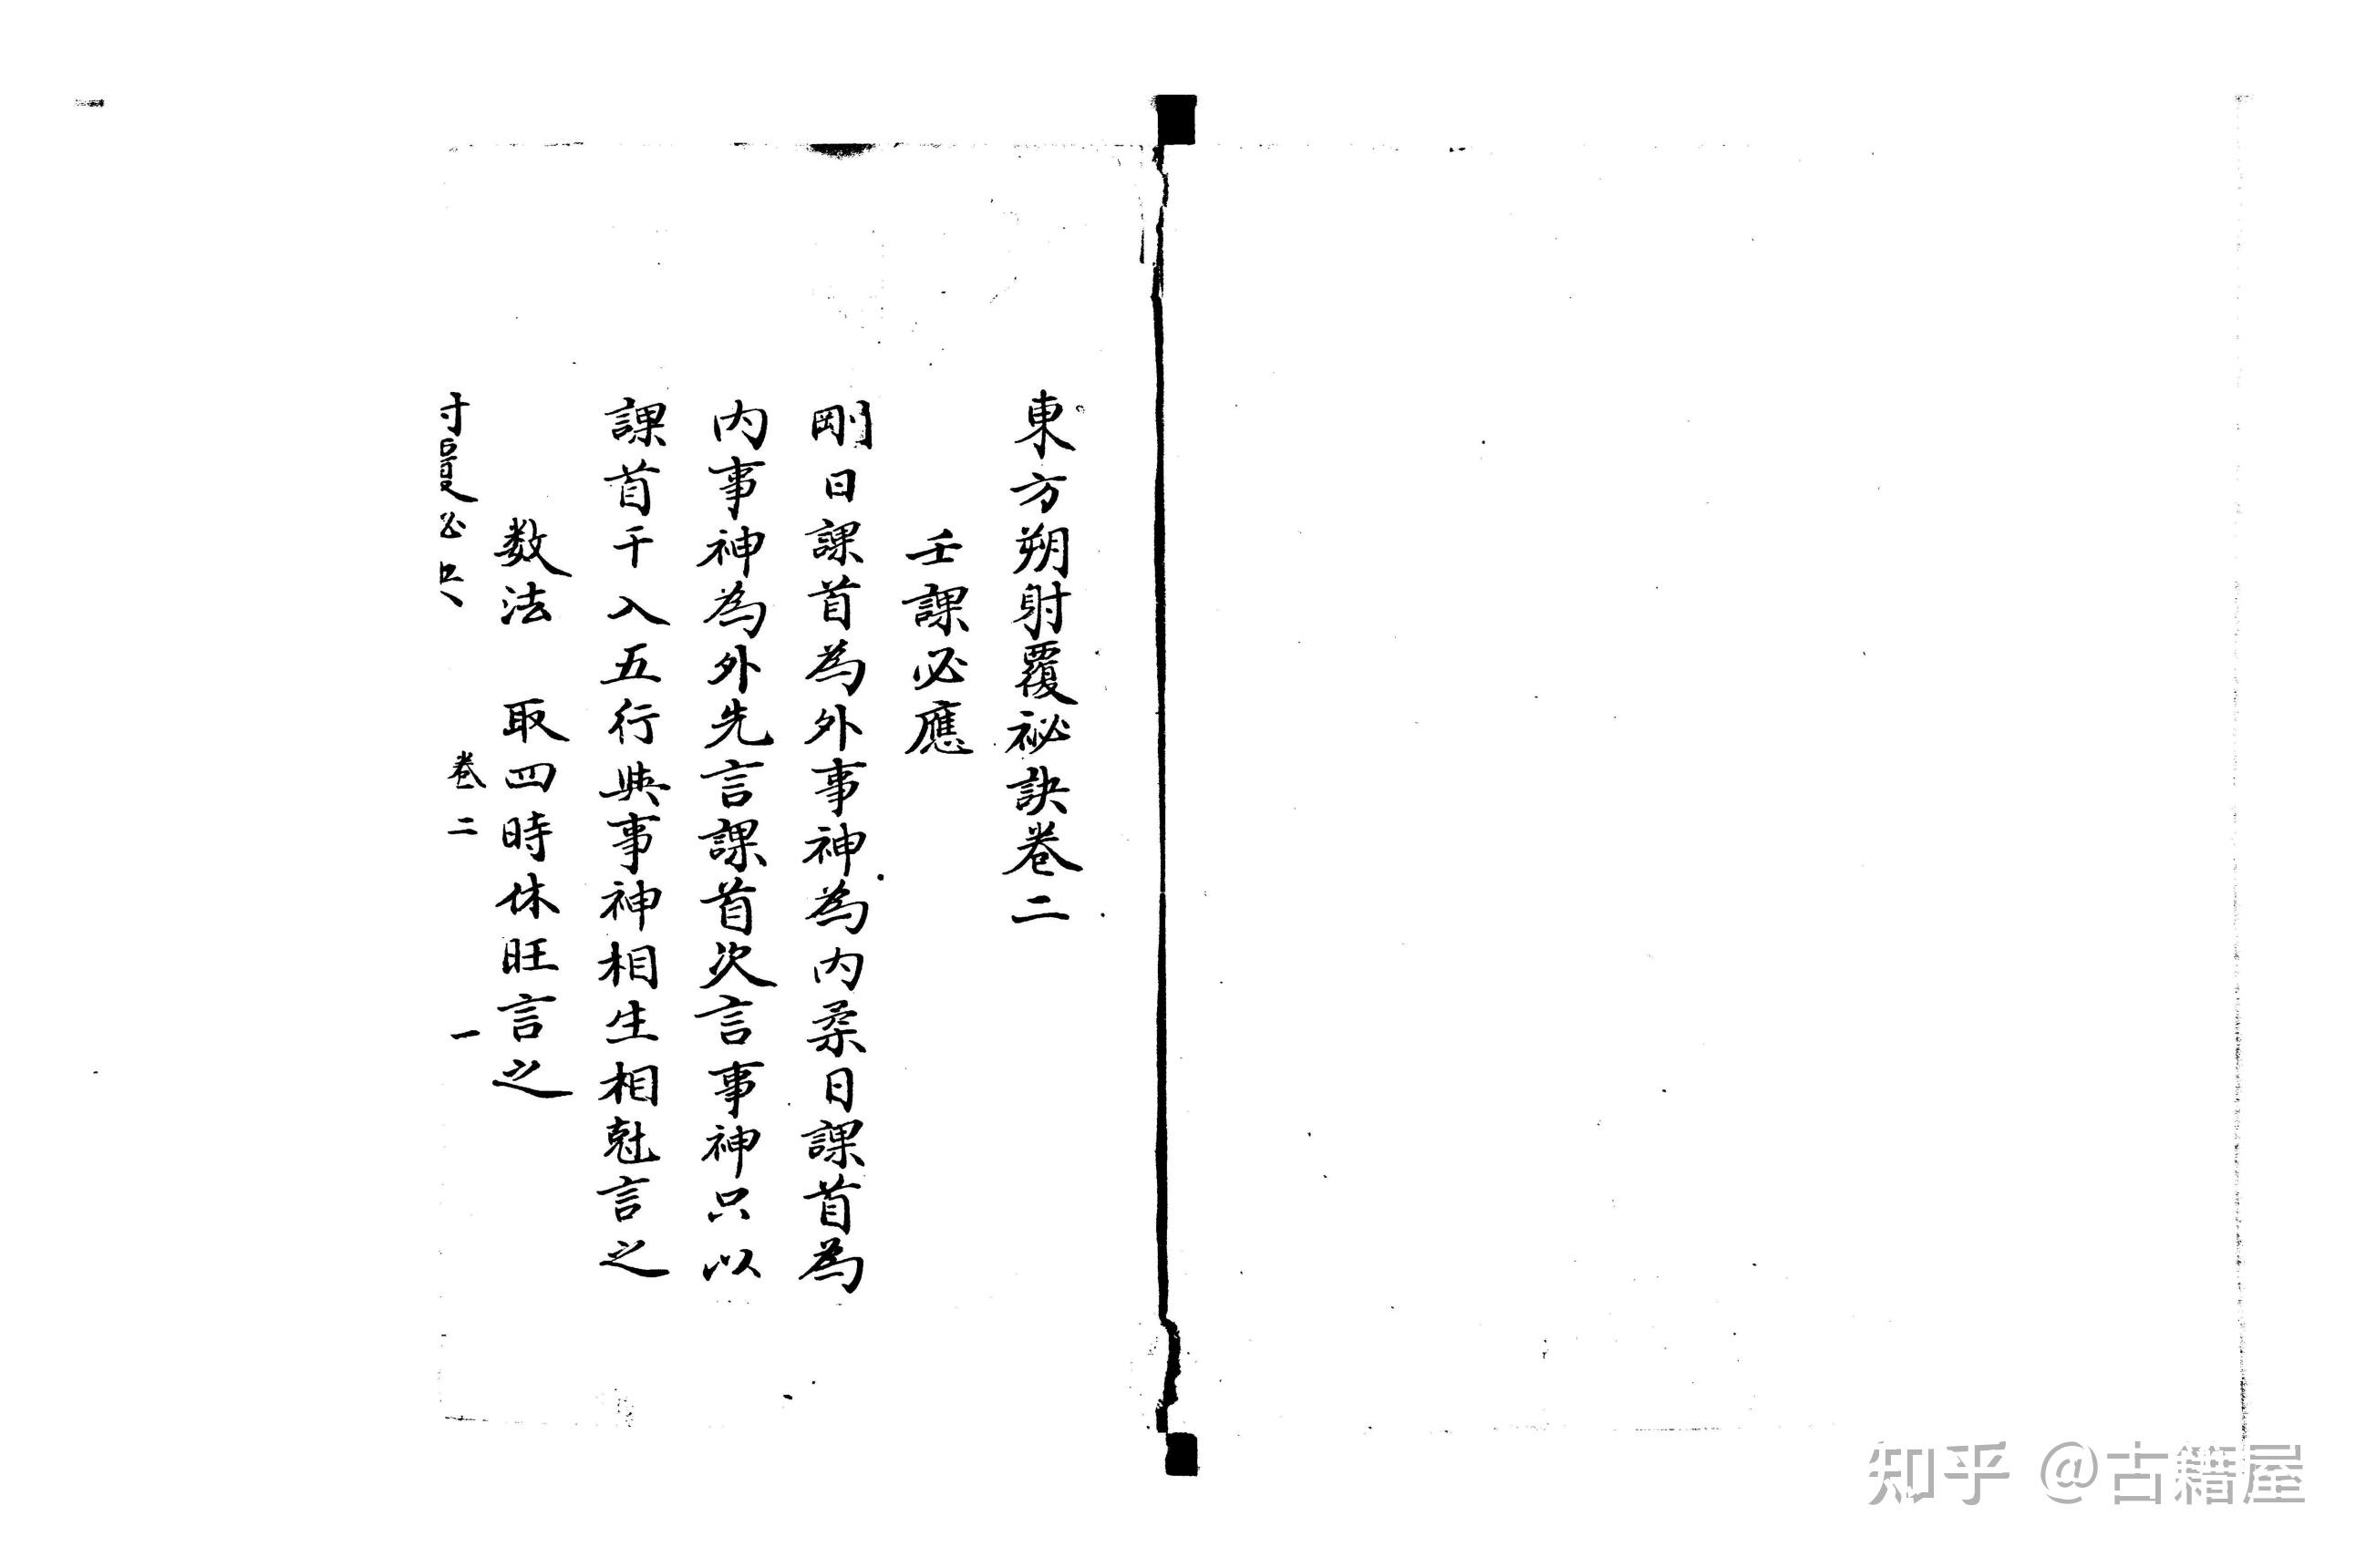 東方朔射覆祕訣卷二
壬課必應
剛日課首為外事神為内柔日課首為
内事神為外先言課首次言事神只以
課首干入五行與事神相生相尅言之
数法　取四時休旺言之
卷二　一
知乎 @古籍屋